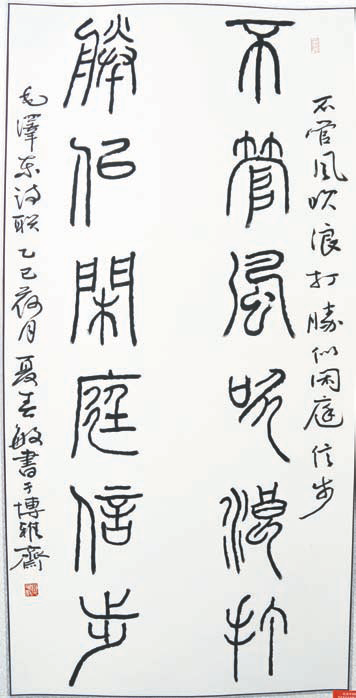 不管风吹浪打勝似闲庭信步
不管風吹浪打
勝似閑庭信步
毛澤东诗联乙巳荷月夏春敏書于博雅齋